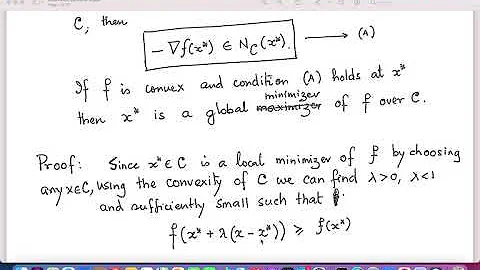 C, then
− ∇f(x*) ∈ N_C(x*). → (A)
If f is convex and condition (A) holds at x*
then x* is a global minimizer of f over C.
Proof: Since x* ∈ C is a local minimizer of f by choosing
any x∈C, using the convexity of C we can find λ>0, λ<1
and sufficiently small such that
f(x* + λ(x − x*)) ⩾ f(x*)